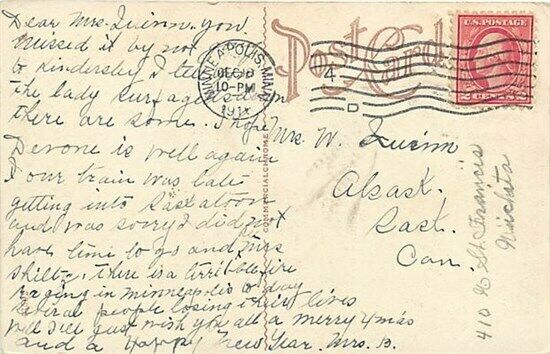 Dear Mrs. Quinn. you
missed it by not
to Kindersley I tell you
the lady surf
there are some. I hope
is well again
our train was late
getting into Saskatoon
and was sorry I did not
have time to go and Mrs
there is a terrible fire
raging in Minneapolis to day
several people losing their lives
Will I'll just wish you all a merry Xmas
and a Happy New Year. Mrs. B.
Post Card
MINNEAPOLIS, MINN.
DEC
10-PM
191
4
D
U.S. POSTAGE
COMMERCIALCHROME
Mrs W. Quinn
Alsask.
Sask.
Can.
410 E St. Francis
Wichita